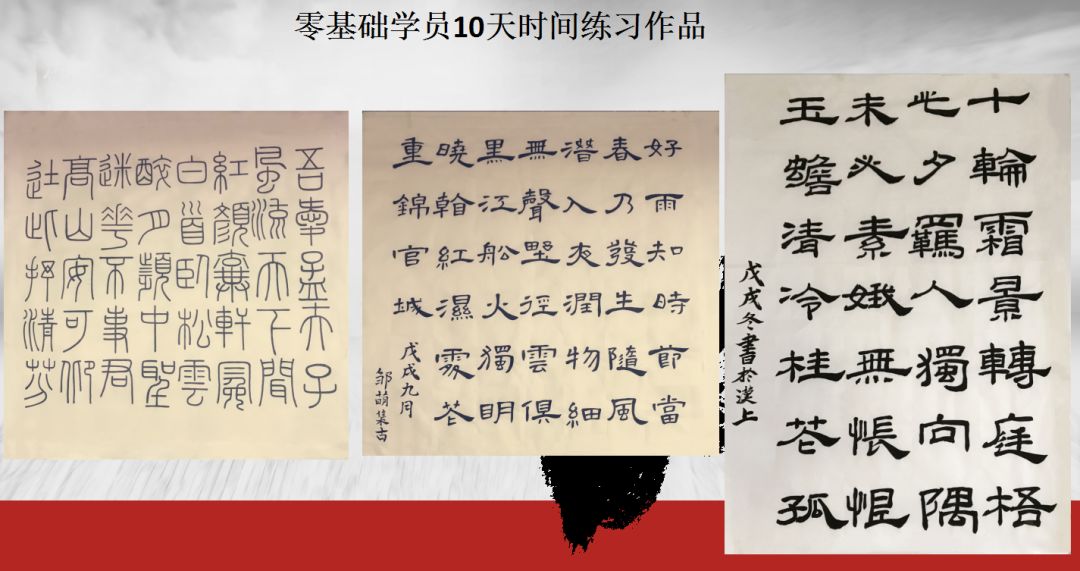 零基础学员10天时间练习作品
吾愛孟夫子
風流天下聞
紅顏棄軒冕
白首臥松雲
醉月頻中聖
迷花不事君
高山安可仰
徒此挹清芬
好雨知時節當
春乃發生隨風
潛入夜潤物細
無聲埜徑雲俱
黑江舩火獨明
曉看紅濕處花
重錦官城
戊戌九月
邹萌集古
十輪霜景轉庭梧
此夕羈人獨向隅
未必素娥無悵恨
玉蟾清冷桂花孤
戊戌冬書於漢上